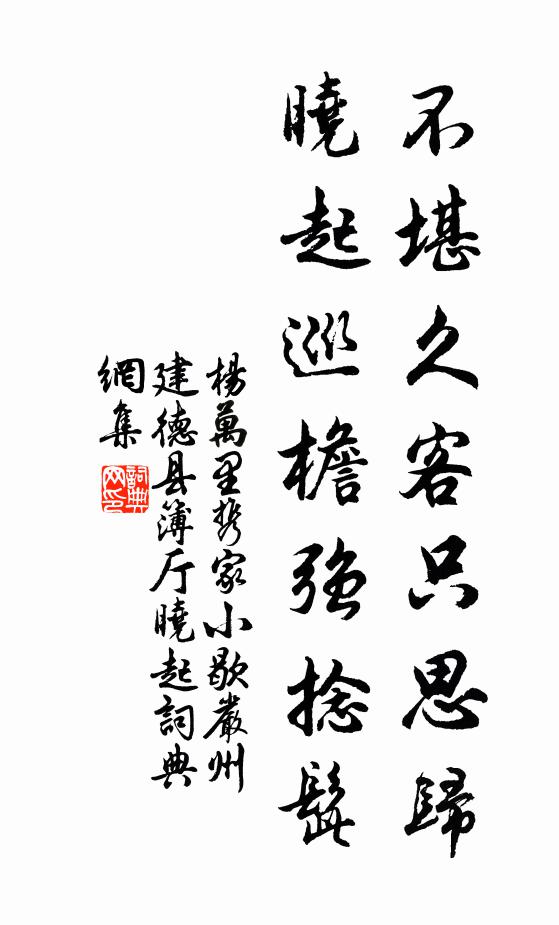 不堪久客只思歸
曉起巡檐強捻髭
楊萬里携家小歇嚴州
建德县簿厅曉起詞典
網集
詞典網印